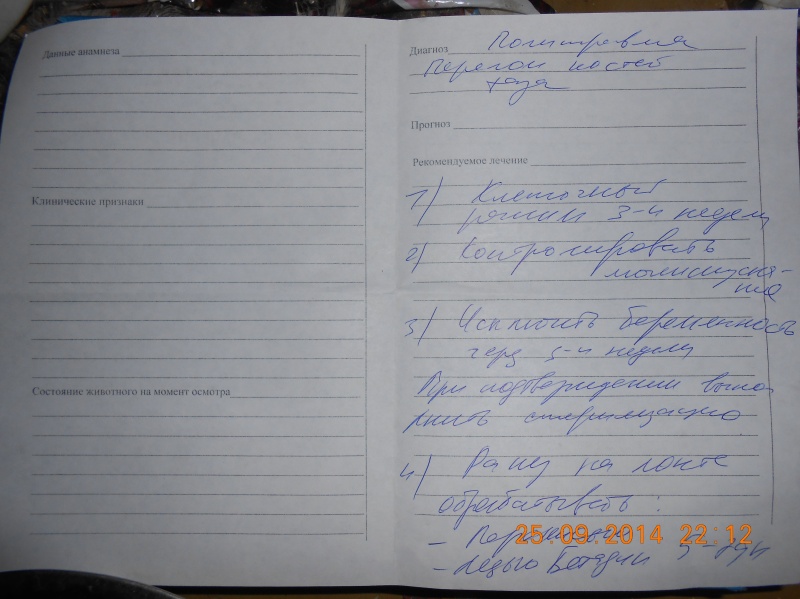 Данные анамнеза
Клинические признаки
Состояние животного на момент осмотра
Диагноз Политравма
Перелом костей
таза
Прогноз
Рекомендуемое лечение
1) Клеточный
режим 3-4 недели
2) Контролировать
мочеиспуска-
ние
3) Исключить беременность
через 3-4 недели
При подтверждении выпол
нить стерилизацию
4) Рану на локте
обрабатывать:
- Перекисью
- мазью Бетадин 5-7дн
25.09.2014 22:12